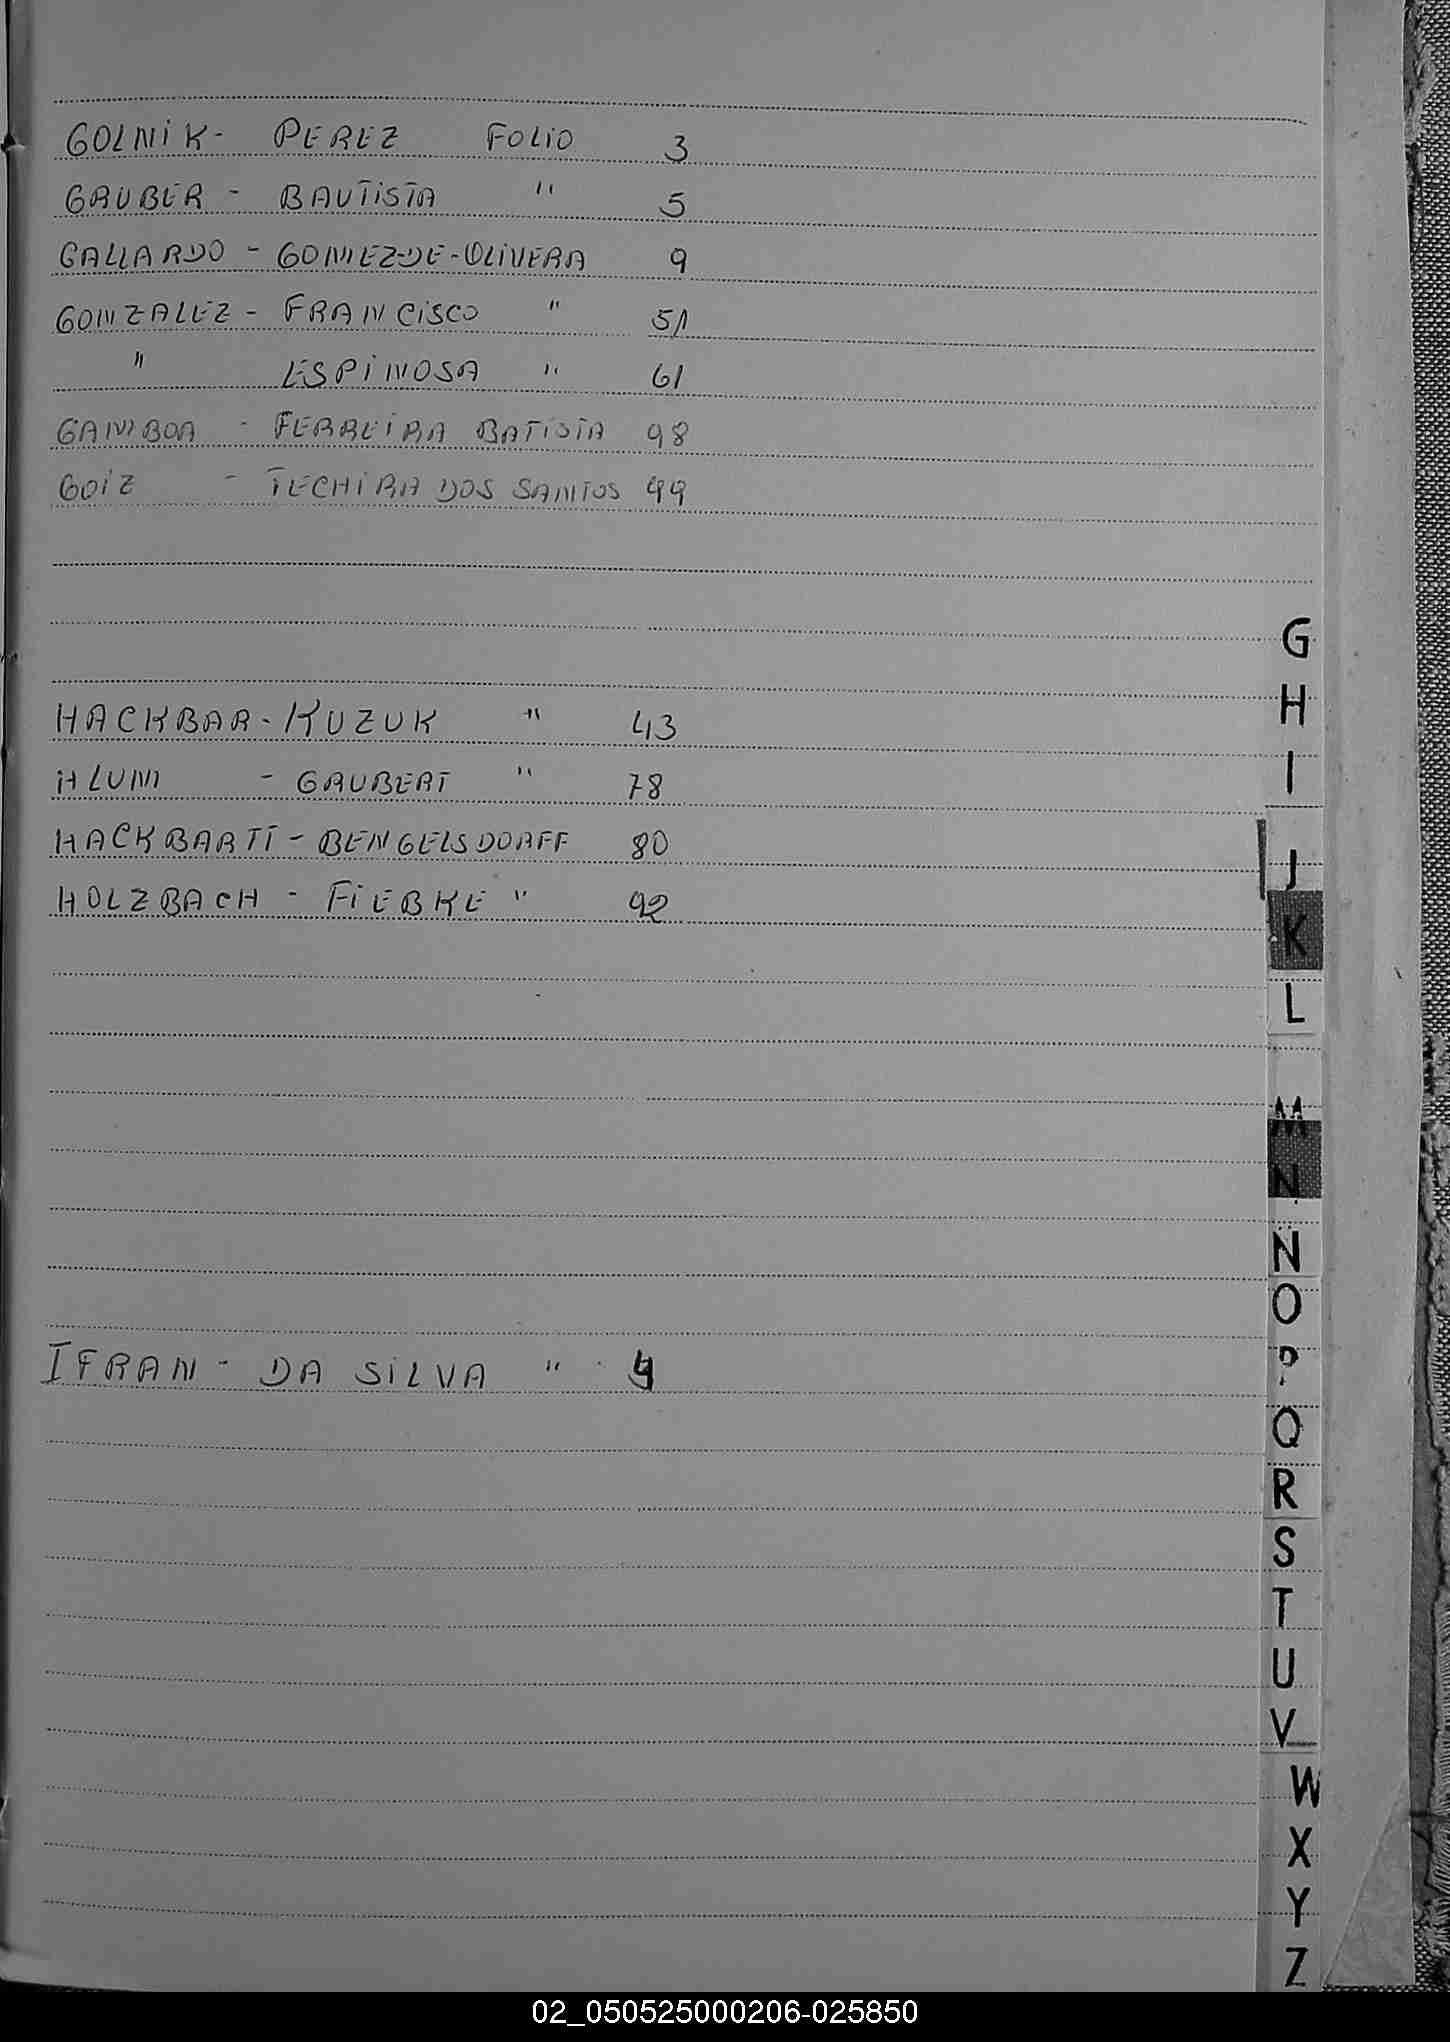 GOLNIK - PEREZ FOLIO 3
GRUBER - BAUTISTA " 5
GALLARDO - GOMEZ-DE-OLIVERA 9
GONZALEZ - FRANCISCO " 51
" ESPINOSA " 61
GAMBOA - FERREIRA BATISTA 98
GOIZ - TECHIRA DOS SANTOS 99
HACKBAR - KUZUK " 43
HLUM - GRUBERT " 78
HACKBARTT - BENGELSDORFF 80
HOLZBACH - FIEBKE " 92
IFRAN - DA SILVA " 4
G
H
I
J
K
L
M
N
Ñ
O
P
Q
R
S
T
U
V
W
X
Y
Z
02_050525000206-025850